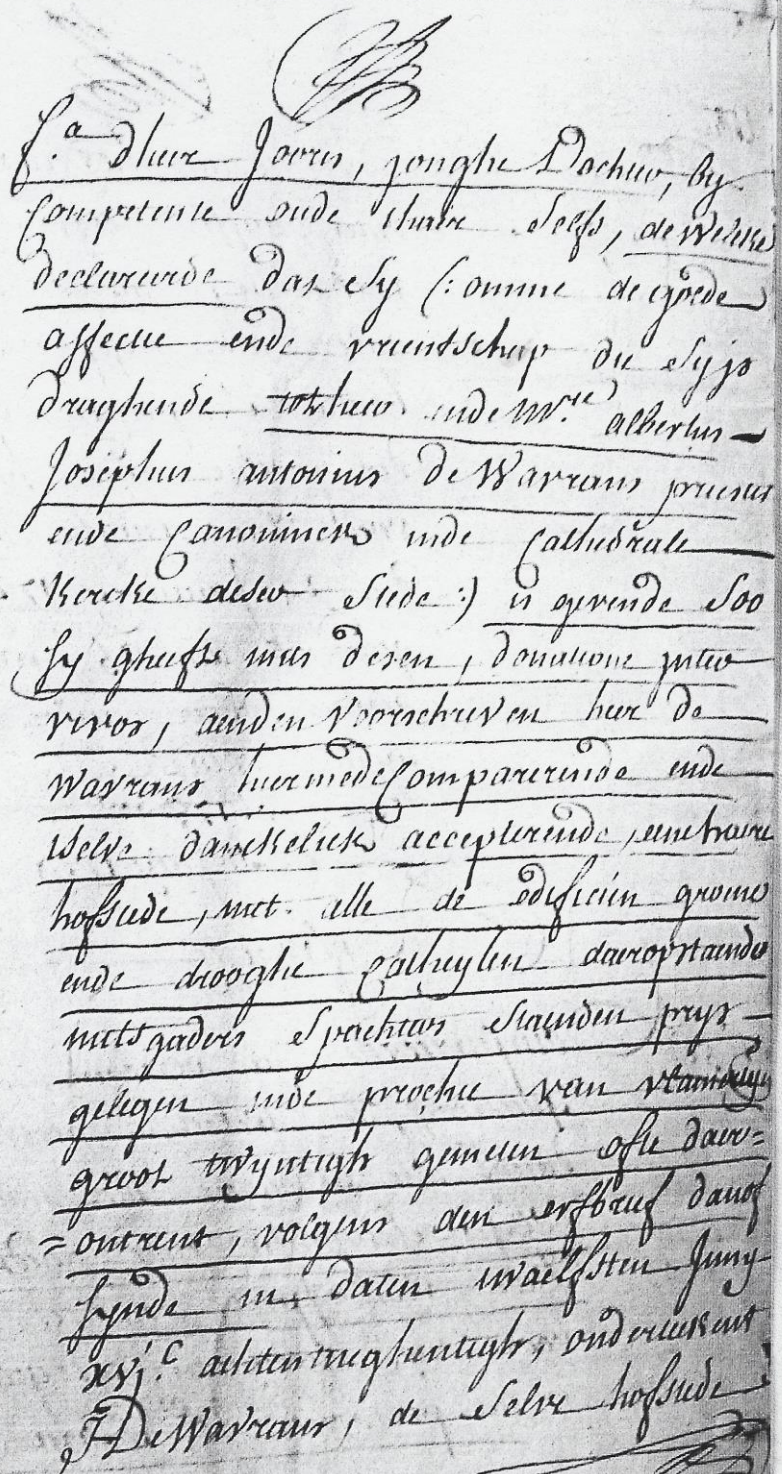 f.ª dheer Jooris, jonghe Dochter, by
Competente oude thaer selfs, de welcke
declareerde dat sy (: omme de goede
affectie ende vrientschap die sy is
draghende tot heer ende Mr.e albertus
Josephus antonius de Wavrans priester
ende Canoninck inde Cathedrale
Kercke deser stede :) is gevende soo
sy gheeft mits desen, donatione inter
vivos, aenden voorschreven heer de
Wavrans hiermede Comparerende ende
tselve danckelick accepterende, eene haere
hofstede, met alle de edificien groene
ende drooghe Catheylen daeropstaende
mitsgaders spachters staenden prys
gelegen inde prochie van
groot twyntigh gemeten ofte daer=
=ontrent, volgens den erfbrief danof
synde in daten twaelfsten Juny
xvj.C achtentneghentigh, onderteekent
De Wavrans, de selve hofstede